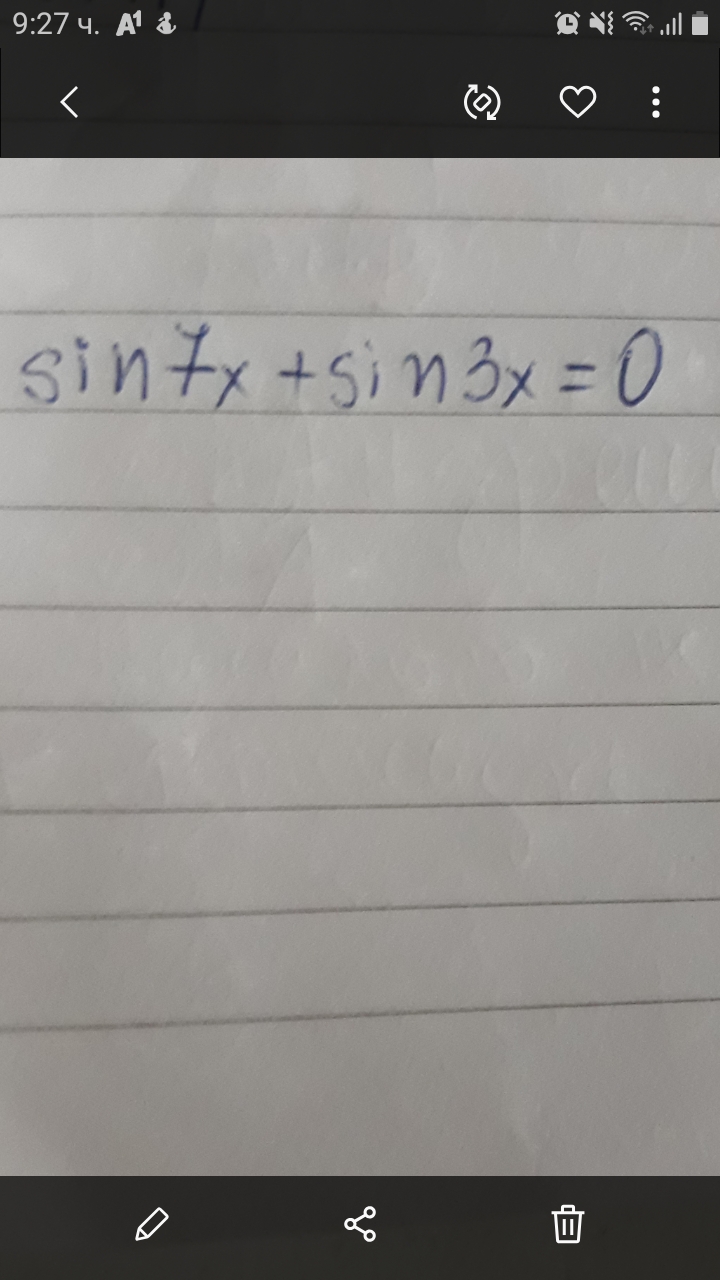 9:27 ч. A1
sin7x + sin3x = 0